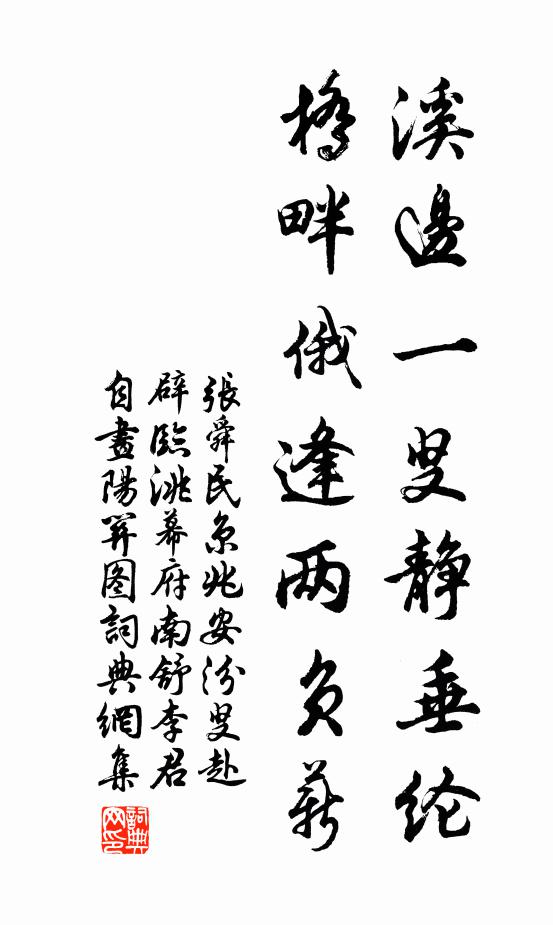 溪邊一叟静垂纶
橋畔俄逢两负薪
張舜民京兆安汾叟赴
辟臨洮幕府南舒李君
自畫陽関图詞典網集
詞典网印